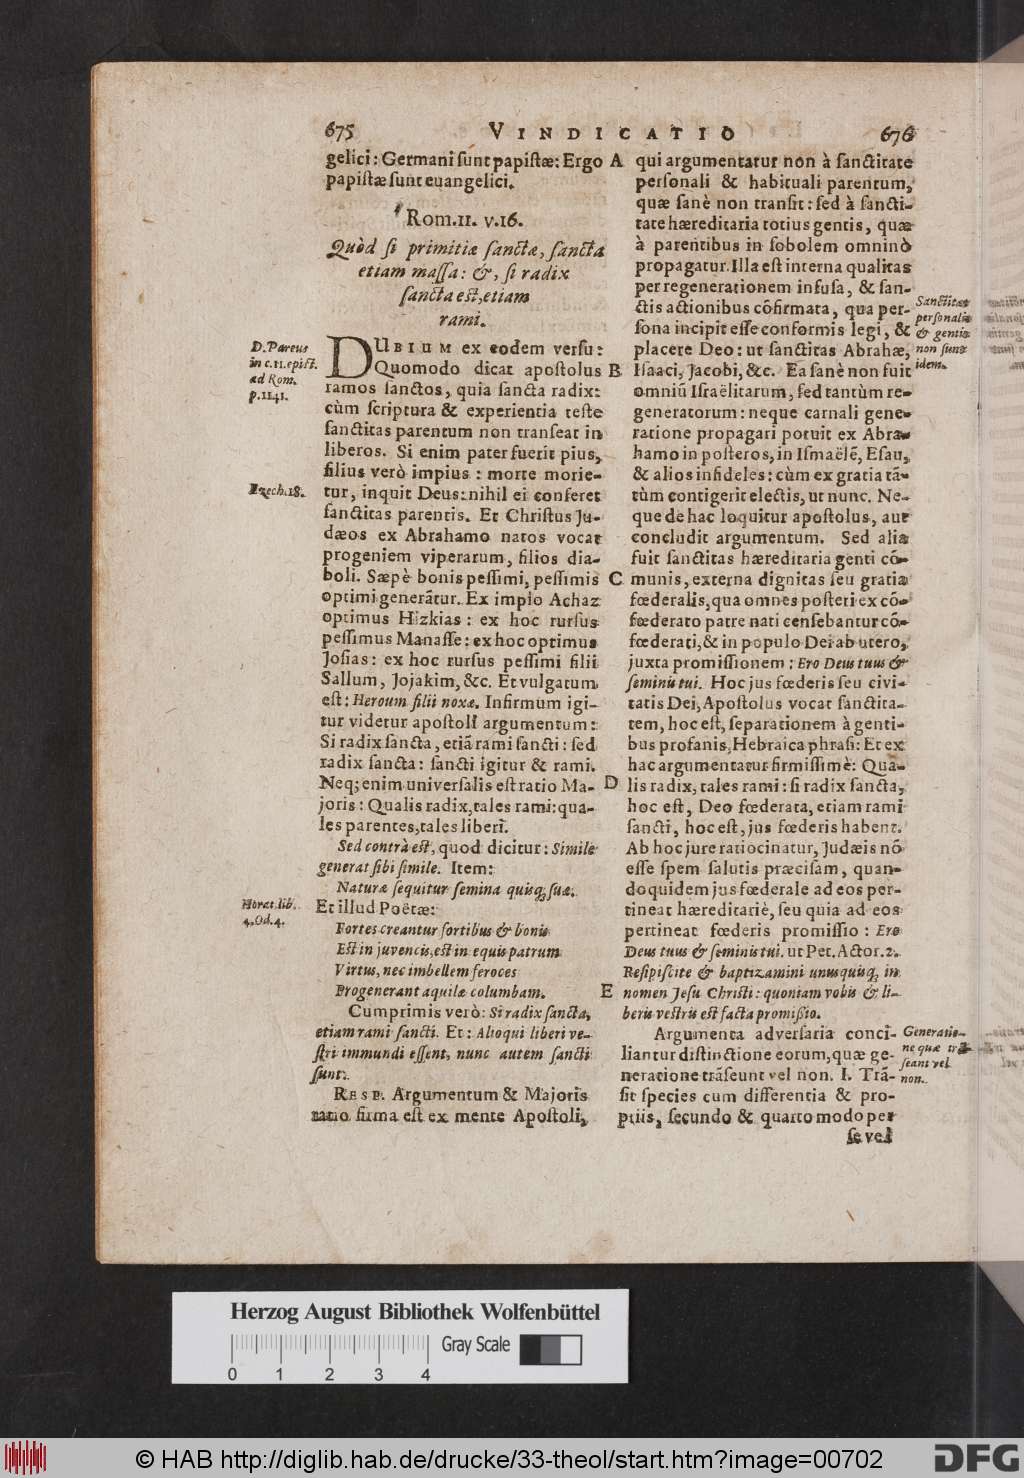 675 VINDICATIO 676
gelici: Germani sunt papistæ: Ergo A
papistæ sunt euangelici.
Rom. 11. v. 16.
Quòd si primitiæ sanctæ, sancta
etiam massa: &, si radix
sancta est, etiam
rami.
D. Pareus
in c. 11. epist.
ad Rom.
p. 1141.
DUBIUM ex eodem versu:
Quomodo dicat apostolus B
ramos sanctos, quia sancta radix:
cùm scriptura & experientia teste
sanctitas parentum non transeat in
liberos. Si enim pater fuerit pius,
filius verò impius: morte morie-
Ezech. 18.
tur, inquit Deus: nihil ei conferet
sanctitas parentis. Et Christus Ju-
dæos ex Abrahamo natos vocat
progeniem viperarum, filios dia-
boli. Sæpè bonis pessimi, pessimis C
optimi generãtur. Ex impio Achaz
optimus Hizkias: ex hoc rursus
pessimus Manasse: ex hoc optimus
Josias: ex hoc rursus pessimi filii
Sallum, Jojakim, &c. Et vulgatum
est: Heroum filii noxæ. Infirmum igi-
tur videtur apostoli argumentum:
Si radix sancta, etiã rami sancti: sed
radix sancta: sancti igitur & rami.
Neq; enim universalis est ratio Ma- D
joris: Qualis radix, tales rami: qua-
les parentes, tales liberi.
Sed contrà est, quod dicitur: Simile
generat sibi simile. Item:
Naturæ sequitur semina quisq; suæ.
Horat. lib.
4. Od. 4.
Et illud Poëtæ:
Fortes creantur fortibus & bonis
Est in juvencis, est in equis patrum
Virtus, nec imbellem feroces
Progenerant aquilæ columbam. E
Cumprimis verò: Si radix sancta,
etiam rami sancti. Et: Alioqui liberi ve-
stri immundi essent, nunc autem sancti
sunt.
RESP. Argumentum & Majoris
ratio firma est ex mente Apostoli,
qui argumentatur non à sanctitate
personali & habituali parentum,
quæ sanè non transit: sed à sancti-
tate hæreditaria totius gentis, quæ
à parentibus in sobolem omninò
propagatur. Illa est interna qualitas
per regenerationem infusa, & san-
ctis actionibus cõfirmata, qua per-
sona incipit esse conformis legi, &
placere Deo: ut sanctitas Abrahæ,
Sanctitas
personalis
& gentis
non sunt
idem.
Isaaci, Jacobi, &c. Ea sanè non fuit
omniũ Israëlitarum, sed tantùm re-
generatorum: neque carnali gene-
ratione propagari potuit ex Abra-
hamo in posteros, in Ismaëlẽ, Esau,
& alios infideles: cùm ex gratia tã-
tùm contigerit electis, ut nunc. Ne-
que de hac loquitur apostolus, aut
concludit argumentum. Sed alia
fuit sanctitas hæreditaria genti cõ-
munis, externa dignitas seu gratia
fœderalis, qua omnes posteri ex cõ-
fœderato patre nati censebantur cõ-
fœderati, & in populo Dei ab utero,
juxta promissionem: Ero Deus tuus &
seminis tui. Hoc jus fœderis seu civi-
tatis Dei, Apostolus vocat sanctita-
tem, hoc est, separationem à genti-
bus profanis, Hebraica phrasi: Et ex
hac argumentatur firmissimè: Qua-
lis radix, tales rami: si radix sancta,
hoc est, Deo fœderata, etiam rami
sancti, hoc est, jus fœderis habent.
Ab hoc jure ratiocinatur, Judæis nõ
esse spem salutis præcisam, quan-
doquidem jus fœderale ad eos per-
tineat hæreditariè, seu quia ad eos
pertineat fœderis promissio: Ero
Deus tuus & seminis tui. ut Pet. Actor. 2.
Resipiscite & baptizamini unusquisq; in
nomen Jesu Christi: quoniam vobis & li-
beris vestris est facta promißio.
Argumenta adversaria conci-
liantur distinctione eorum, quæ ge-
neratione trãseunt vel non. I. Trã-
sit species cum differentia & pro-
priis, secundo & quarto modo per
Generatio-
ne quæ trã-
seant vel
non.
se vel
Herzog August Bibliothek Wolfenbüttel
Gray Scale
0 1 2 3 4
© HAB http://diglib.hab.de/drucke/33-theol/start.htm?image=00702
DFG